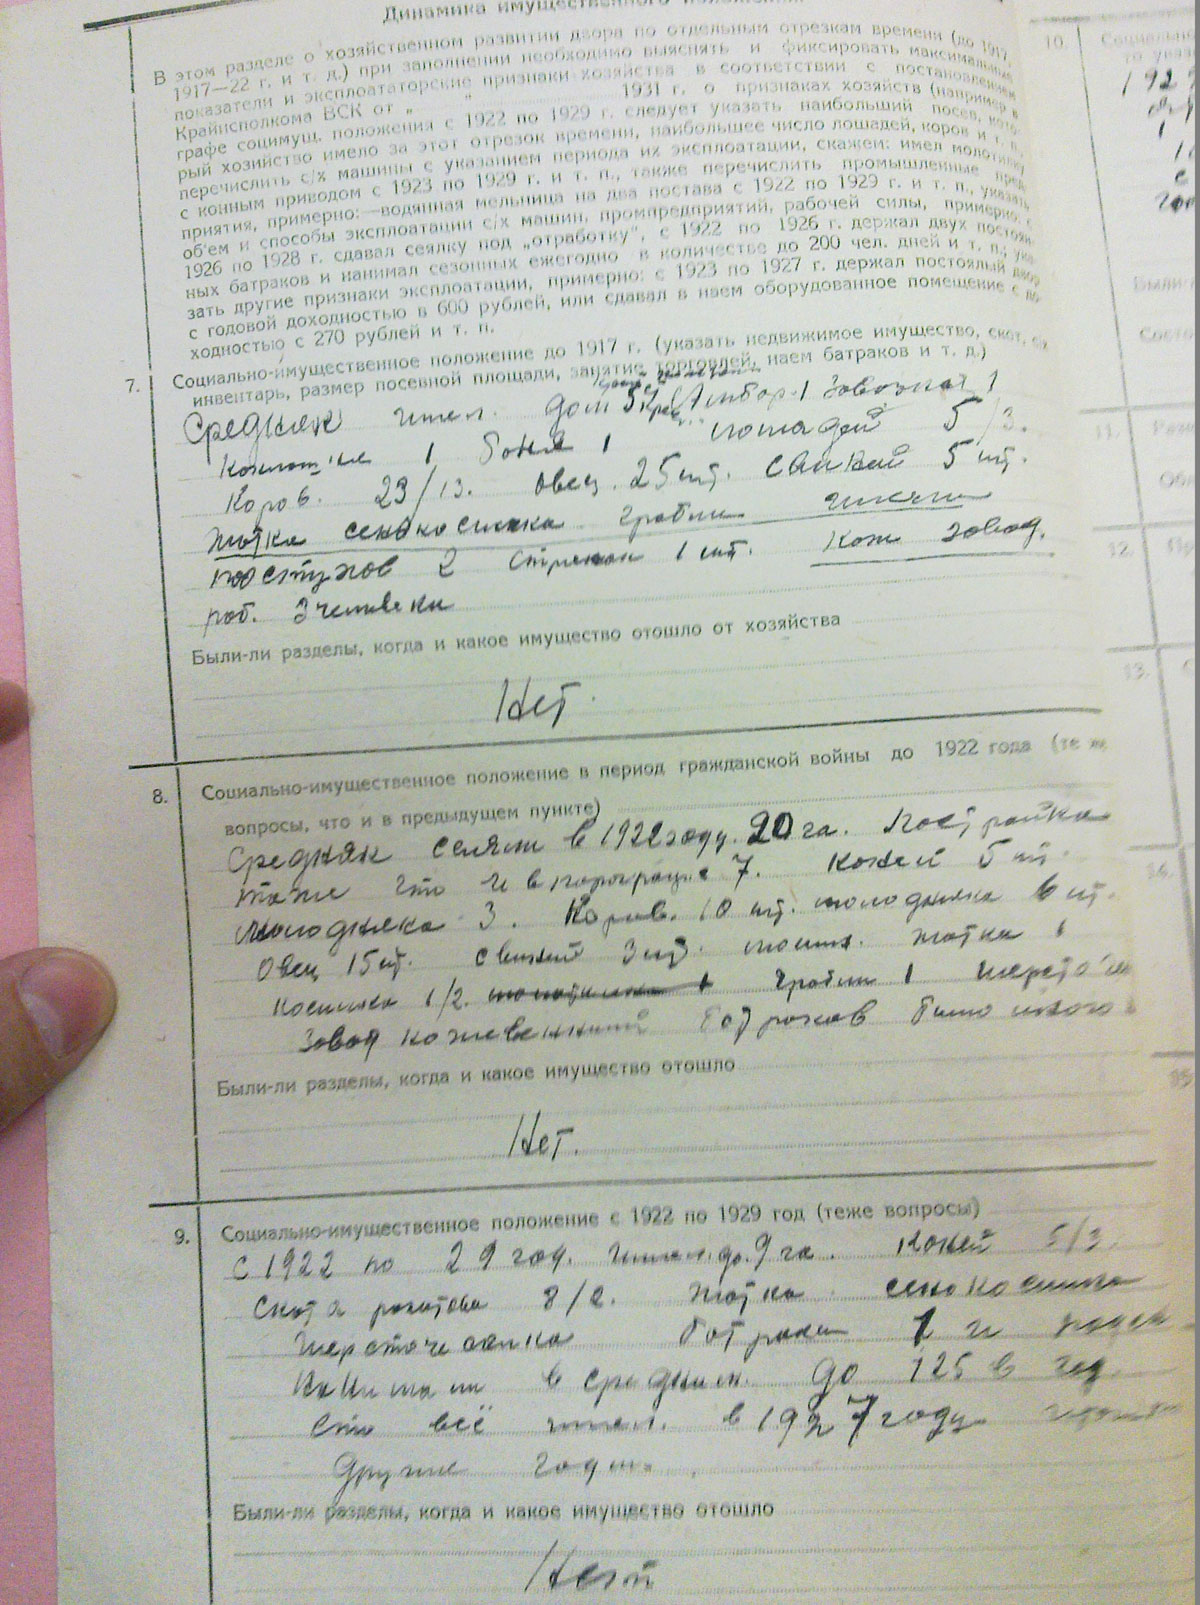 Динамика имущественного положения
В этом разделе о хозяйственном развитии двора по отдельным отрезкам времени (до 1917,
1917—22 г. и т. д.) при заполнении необходимо выяснять и фиксировать максимальные
показатели и эксплоататорские признаки хозяйства в соответствии с постановлением
Крайисполкома ВСК от „ " 1931 г. о признаках хозяйств (например в
графе социмущ. положения с 1922 по 1929 г. следует указать наибольший посев, кото-
рый хозяйство имело за этот отрезок времени, наибольшее число лошадей, коров и т. п.,
перечислить с/х машины с указанием периода их эксплоатации, скажем: имел молотилку
с конным приводом с 1923 по 1929 г. и т. п., также перечислить промышленные пред-
приятия, примерно:—водянная мельница на два постава с 1922 по 1929 г. и т. п., указать
об'ем и способы эксплоатации с/х машин, промпредприятий, рабочей силы, примерно: с
1926 по 1928 г. сдавал сеялку под „отработку", с 1922 по 1926 г. держал двух постоян-
ных батраков и нанимал сезонных ежегодно в количестве до 200 чел. дней и т. п., ука-
зать другие признаки эксплоатации, примерно: с 1923 по 1927 г. держал постоялый двор
с годовой доходностью в 600 рублей, или сдавал в наем оборудованное помещение с до-
ходностью с 270 рублей и т. п.
7. Социально-имущественное положение до 1917 г. (указать недвижимое имущество, скот, с/х
инвентарь, размер посевной площади, занятие торговлей, наем батраков и т. д.)
Средняк имел. дом Амбор 1 Завозня 1
1 баня 1 лошадей 5/3.
Коров. 23/13. Овец. 25 шт. свиней 5 шт.
Жатка сенокосилка грабли имели
постухов 2 1 шт. Кож завод.
раб. 3 человека
Были-ли разделы, когда и какое имущество отошло от хозяйства
Нет.
8. Социально-имущественное положение в период гражданской войны до 1922 года (те же
вопросы, что и в предыдущем пункте)
Средняк сеяли в 1922 году. 20 га. Постройка
таже что и в параграфе 7. Коней 5 шт.
молодняка 3. Коров. 10 шт. молодняка 6 шт.
Овец 15 шт. свиней 3 шт. жатка 1
косилка 1/2. грабли 1
Завод кожевенный батраков было
Были-ли разделы, когда и какое имущество отошло
Нет.
9. Социально-имущественное положение с 1922 по 1929 год (теже вопросы)
С 1922 по 29 год. имел. до. 9 га. Коней 5/3.
Скота рогатова 8/2. жатка сенокосилка
Шерсточесалка батраки 1 и
в среднем до 125 в год.
Это всё имел. в 1927 году
другие годы.
Были-ли разделы, когда и какое имущество отошло
Нет
10.
11.
12.
13.
14.
15.